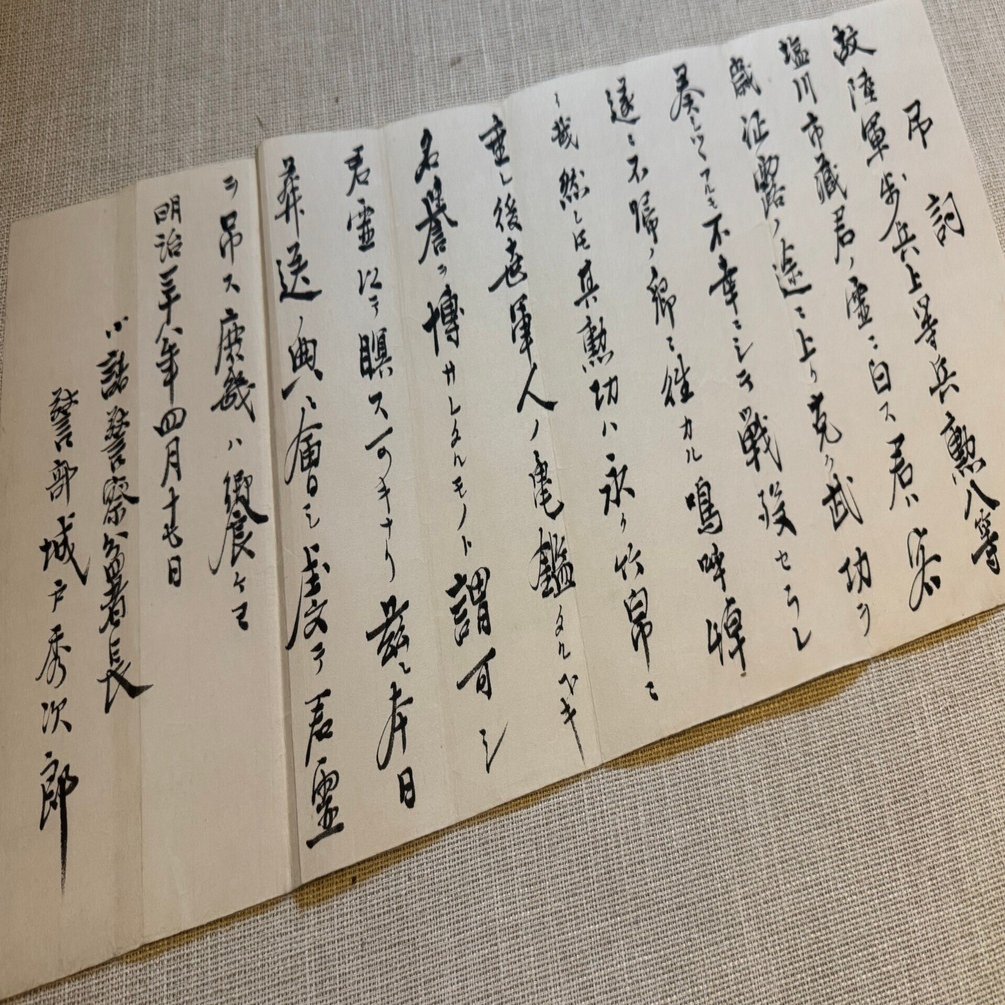 吊詞
故陸軍歩兵上等兵勲八等
塩川市蔵君ノ霊ニ白ス君ハ客
歳征露ノ途ニ上リ克ク武功ヲ
奏シツヽアルモ不幸ニシテ戦歿セラレ
遂ニ不帰ノ郷ニ往カル嗚呼悼
ミ哉然レ共其勲功ハ永ク竹帛ニ
垂レ後世軍人ノ亀鑑タルベキ
名誉ヲ博サレタルモノト謂可シ
君霊以テ瞑ス可キナリ茲ニ本日
葬送ノ典ニ会シ虔テ君霊
ヲ吊ス庶幾ハ饗ケヨ
明治三十八年四月十七日
小諸警察分署長
警部城戸秀次郎